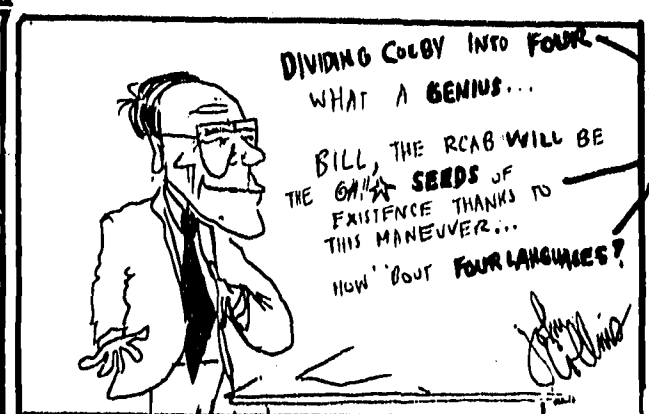 DIVIDING COLBY INTO FOUR
WHAT A GENIUS...
BILL, THE RCAB WILL BE
THE @#!!☆ SEEDS OF
EXISTENCE THANKS TO
THIS MANEUVER...
HOW 'BOUT FOUR LANGUAGES?
John
Collins